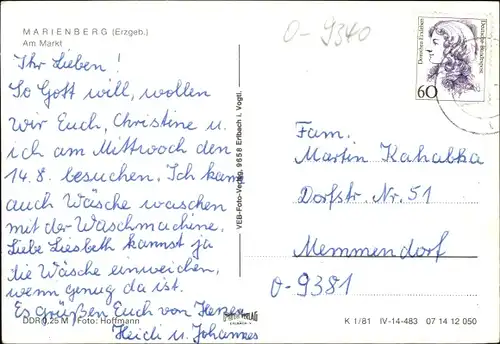 MARIENBERG (Erzgeb.)
Am Markt
O-9340
Ihr Lieben!
So Gott will, wollen
wir Euch, Christine u.
ich am Mittwoch den
14.8. besuchen. Ich kann
auch Wäsche waschen
mit der Waschmachine.
Liebe Liesbeth kannst ja
die Wäsche einweichen,
wenn genug da ist.
Es grüßen Euch von Herzen
Heidi u. Johannes
DDR 0,25 M Foto: Hoffmann
VEB-Foto-Verlag 9658 Erlbach i. Vogtl.
Deutsche Bundespost
60
Fam.
Martin Kahabka
Dorfstr. Nr. 51
Memmendorf
O-9381
K 1/81 IV-14-483 07 14 12 050